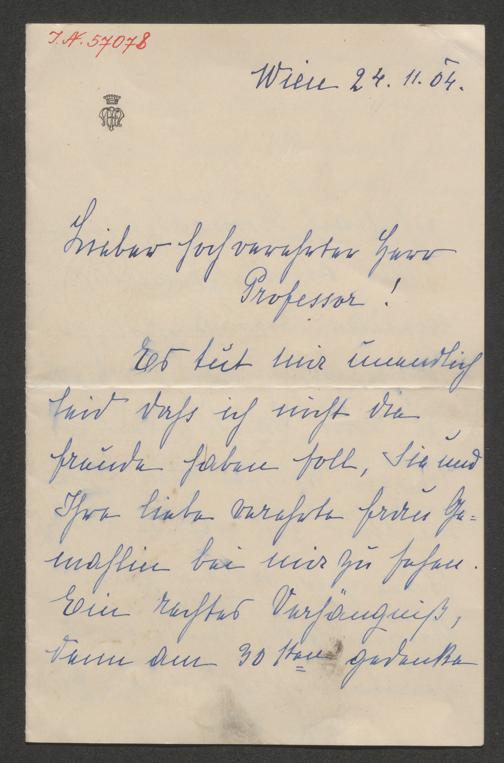 I.N. 57078
Wien 24. 11. 04.
Lieber hochverehrter Herr
Professor !
Es tut mir unendlich
leid daß ich nicht die
Freude haben soll, Sie und
Ihre liebe verehrte Frau Ge=
mahlin bei mir zu sehen.
Ein rechtes Verhängniß,
denn am 30 sten gedenke